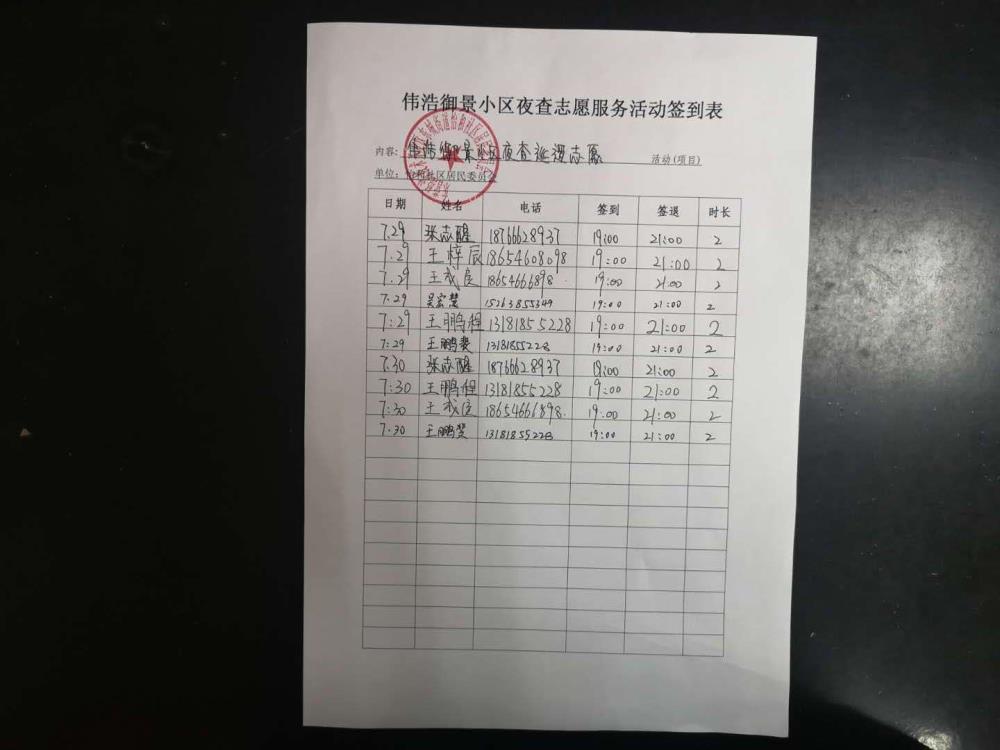 伟浩御景小区夜查志愿服务活动签到表
内容: 伟浩御景小区夜查巡逻志愿 活动(项目)
单位: 怡和社区居民委员会
日期 姓名 电话 签到 签退 时长
7.29 张志醒 18766628937 19:00 21:00 2
7.29 王梓辰 18654608098 19:00 21:00 2
7.29 王成良 18654666898 19:00 21:00 2
7.29 吴宏慧 15263855349 19:00 21:00 2
7:29 王鹏程 13181855228 19:00 21:00 2
7:29 王鹏 13181855228 19:00 21:00 2
7.30 张志醒 18766628937 19:00 21:00 2
7:30 王鹏程 13181855228 19:00 21:00 2
7:30 王成良 18654666898 19.00 21:00 2
7.30 王鹏 13181855228 19:00 21:00 2